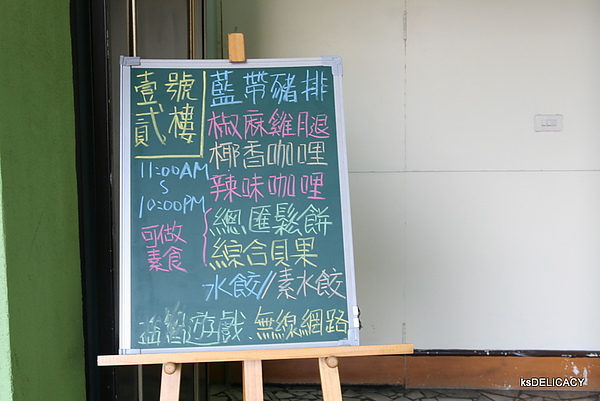 壹號
貳樓
11:00AM
S
10:00PM
可做
素食
藍帶豬排
椒麻雞腿
椰香咖哩
辣味咖哩
總匯鬆餅
綜合貝果
水餃//素水餃
益智遊戲.無線網路
ksDELICACY